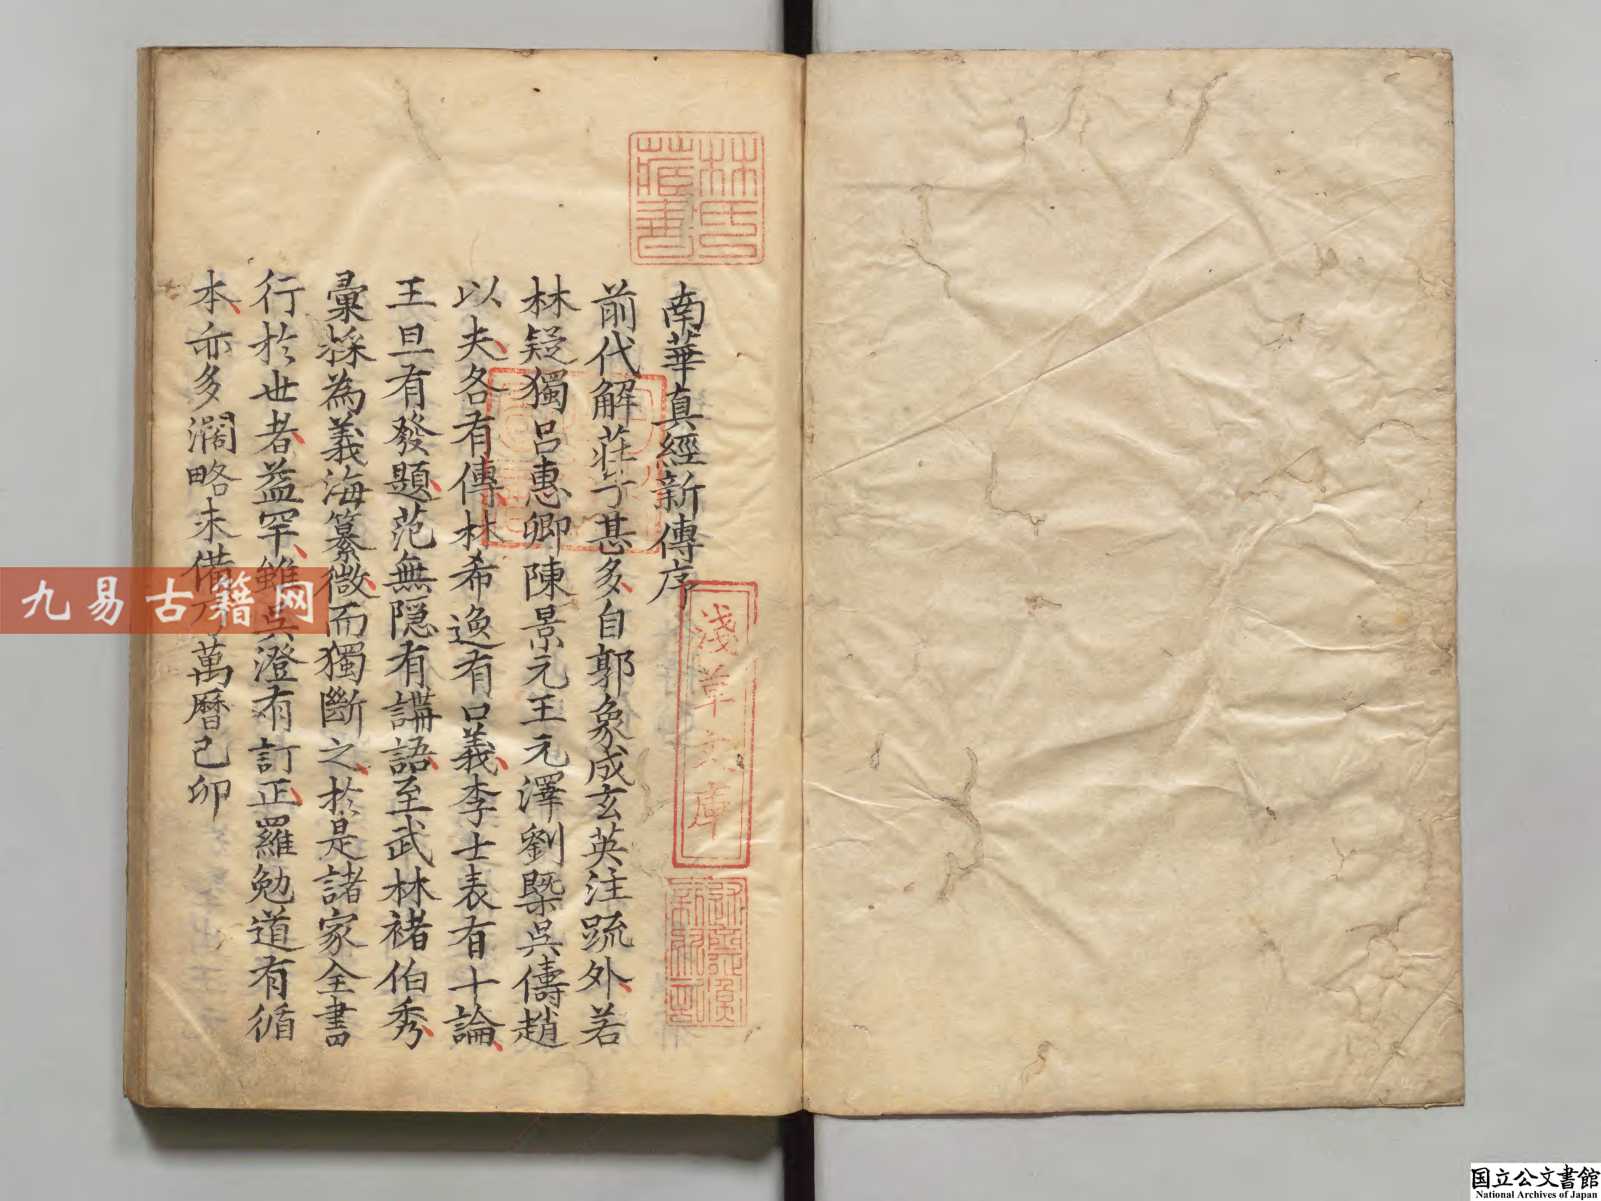 南華真經新傳序
前代解莊子甚多自郭象成玄英注疏外若
林疑獨呂惠卿陳景元王元澤劉槩吳儔趙
以夫各有傳林希逸有口義李士表有十論
王旦有發題范無隠有講語至武林褚伯秀
彙採為義海纂微而獨斷之於是諸家全書
行於世者益罕雖吳澄有訂正羅勉道有循
本亦多濶略未備乃萬曆己卯
林氏藏書
淺草文庫
九易古籍网
国立公文書館
National Archives of Japan